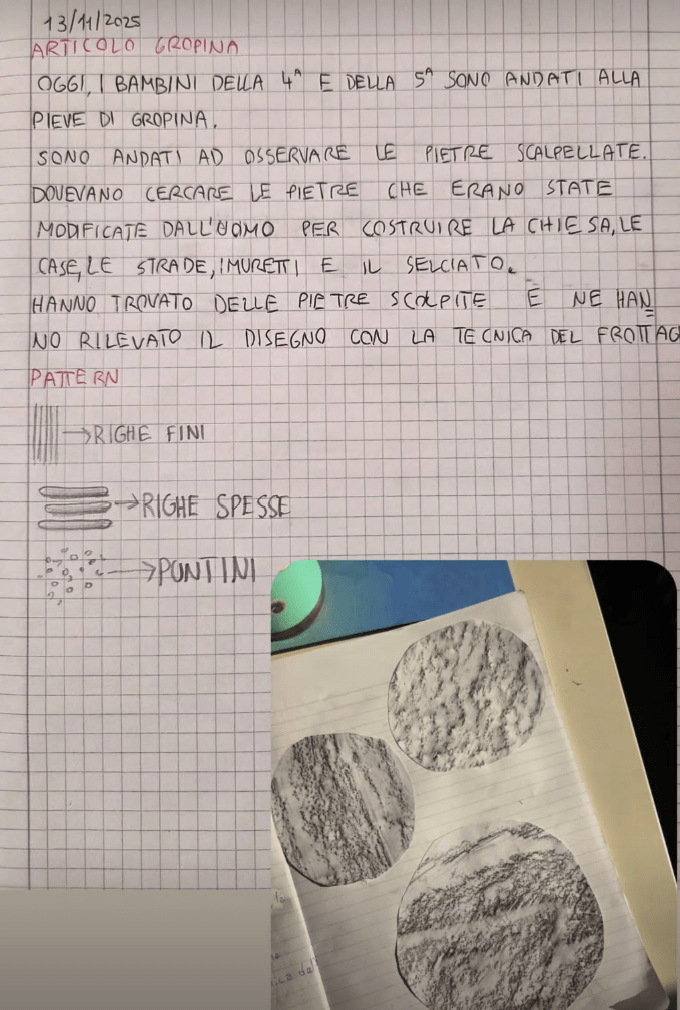 13/11/2025
ARTICOLO GROPINA
OGGI, I BAMBINI DELLA 4ª E DELLA 5ª SONO ANDATI ALLA
PIEVE DI GROPINA.
SONO ANDATI AD OSSERVARE LE PIETRE SCALPELLATE.
DOVEVANO CERCARE LE PIETRE CHE ERANO STATE
MODIFICATE DALL'UOMO PER COSTRUIRE LA CHIESA, LE
CASE, LE STRADE, I MURETTI E IL SELCIATO.
HANNO TROVATO DELLE PIETRE SCOLPITE E NE HAN
NO RILEVATO IL DISEGNO CON LA TECNICA DEL FROTTAG
PATTERN
RIGHE FINI
RIGHE SPESSE
PUNTINI